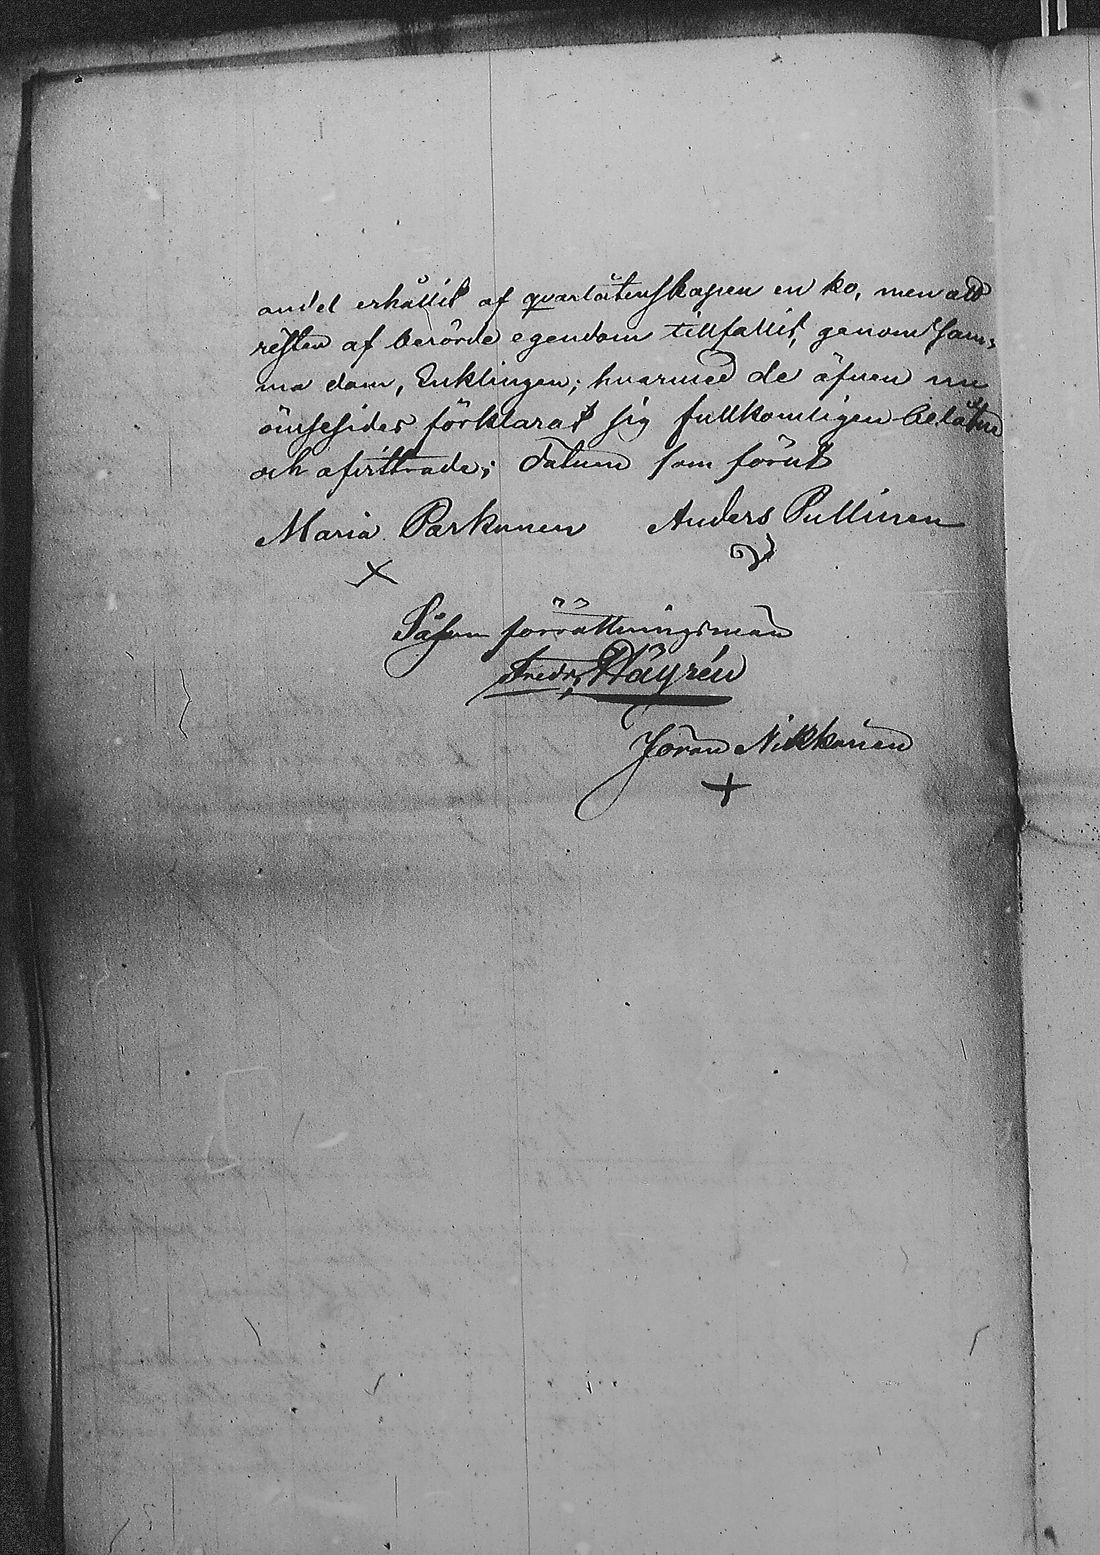 andel erhållit af qvarlåtenskapen en ko, men att
resten af berörde egendom tillfallit, genom sam-
ma dom, Enklingen; hvarmed de äfven nu
ömsesides förklarat sig fullkomligen belåtne
och afvittrade; datum som förut
Maria Parkunen Anders Pullinen
Såsom förrättningsmän
Fredr. Häyrén
Jöran Nikkonen